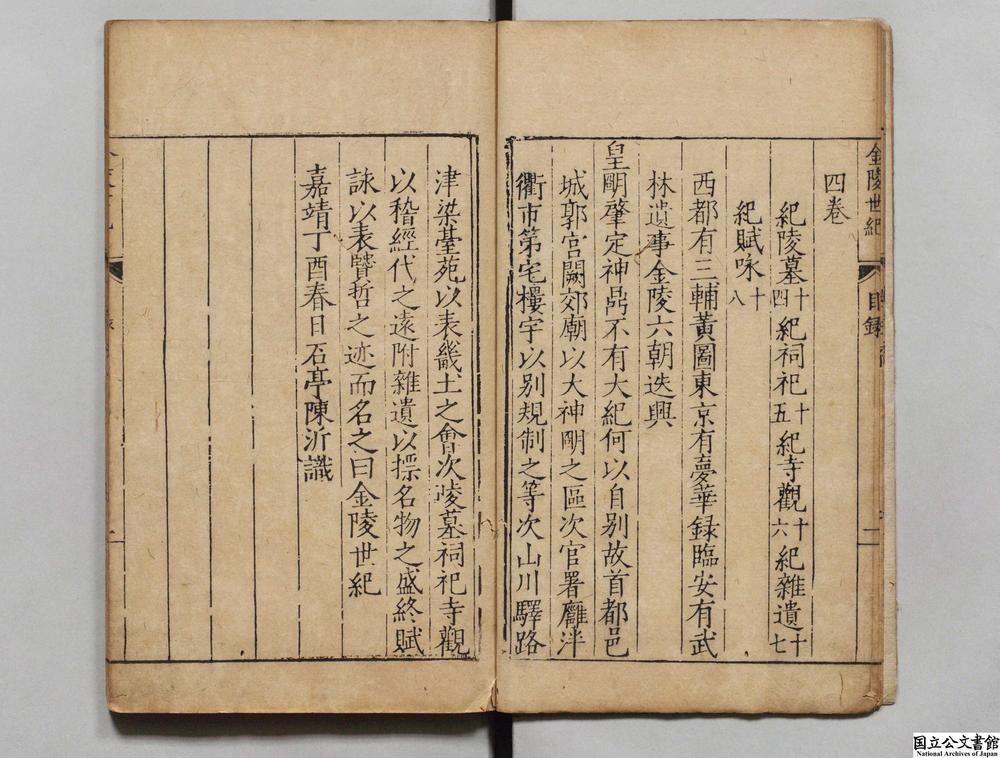 金陵世紀
目録
四卷
紀陵墓十四 紀祠祀十五 紀寺觀十六 紀雜遺十七
紀賦咏十八
西都有三輔黃圖東京有夢華録臨安有武
林遺事金陵六朝迭興
皇明肇定神鼎不有大紀何以自别故首都邑
城郭宮闕郊廟以大神明之區次官署廱泮
衢市第宅樓宇以别規制之等次山川驛路
津梁臺苑以表畿土之會次陵墓祠祀寺觀
以稽經代之遠附雜遺以摽名物之盛終賦
詠以表賢哲之迹而名之曰金陵世紀
嘉靖丁酉春日石亭陳沂識
国立公文書館
National Archives of Japan